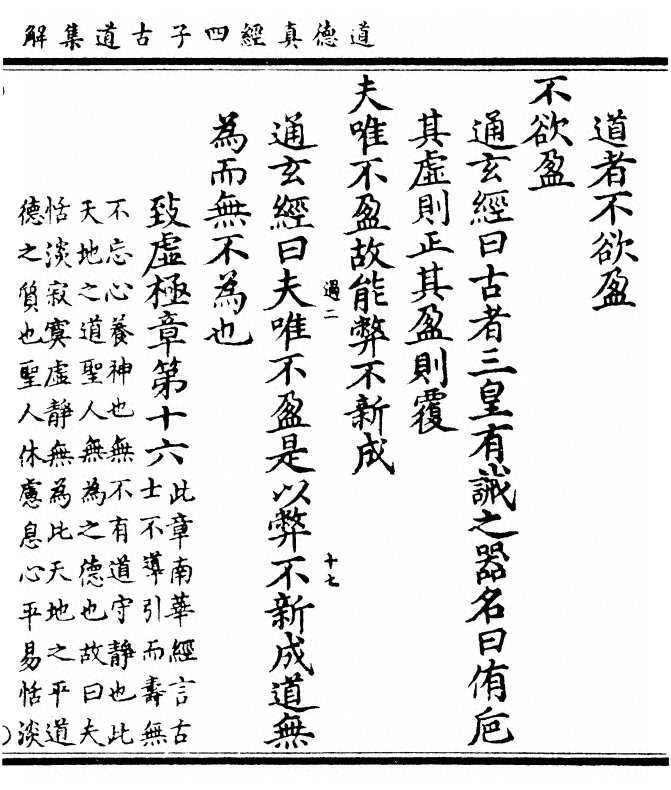 道德真經四子古道集解
道者不欲盈
不欲盈
通玄經曰古者三皇有誡之器名曰侑巵
其虛則正其盈則覆
夫唯不盈故能弊不新成
過二
十七
通玄經曰夫唯不盈是以弊不新成道無
為而無不為也
致虛極章第十六
此章南華經言古
士不導引而壽無
不忘心養神也無不有道守靜也此
天地之道聖人無為之德也故曰夫
恬淡寂寞虛靜無為此天地之平道
德之質也聖人休慮息心平易恬淡